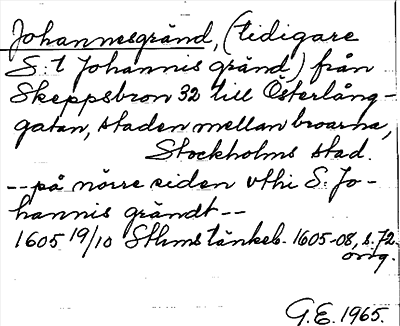 Johannesgränd, (tidigare
S:t Johannis gränd) från
Skeppsbron 32 till Österlång-
gatan, staden mellan broarna,
Stockholms stad.
--på nörre siden vthi S. Jo-
hannis grändt--
1605 19/10 Sthms tänkeb. 1605-08, s. 72.
orig.
G.E. 1965.